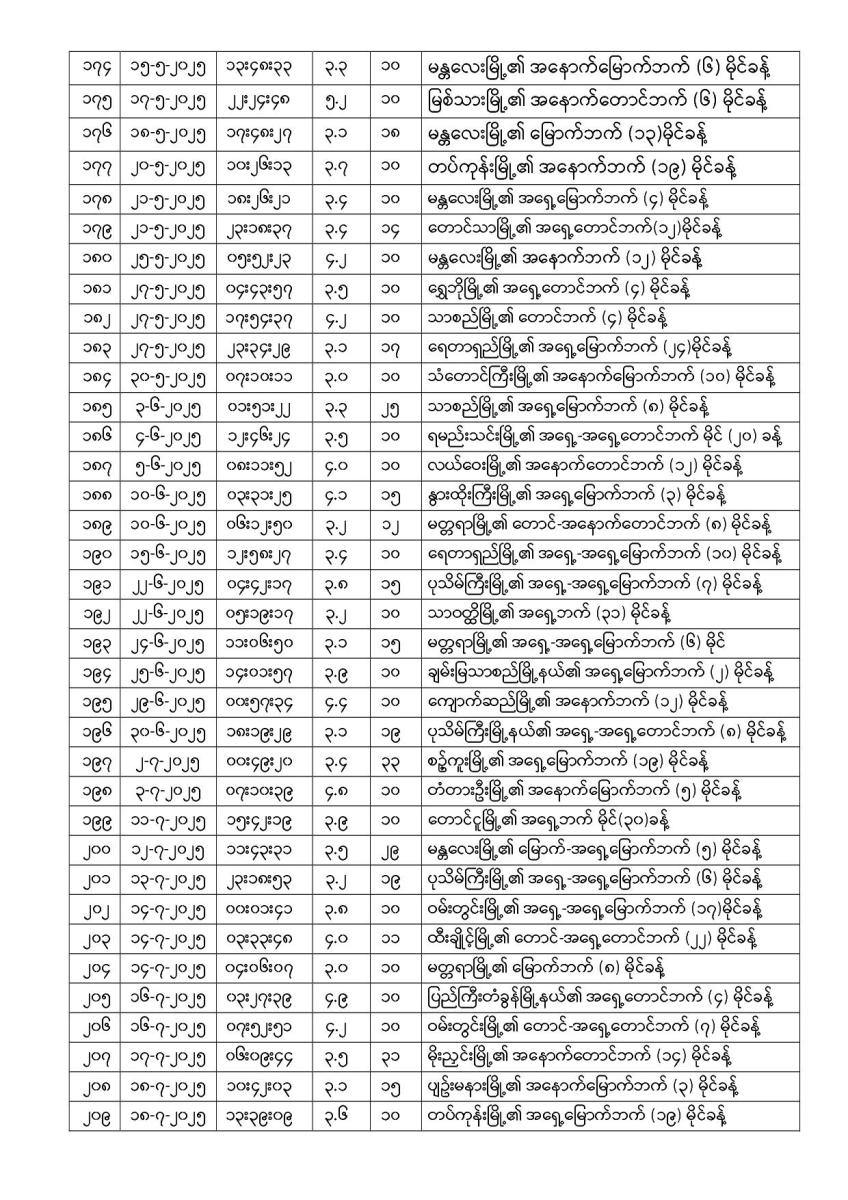 ၁၇၄ ၁၅-၅-၂၀၂၅ ၁၃း၄၈း၃၃ ၃.၃ ၁၀ မန္တလေးမြို့၏ အနောက်မြောက်ဘက် (၆) မိုင်ခန့်
၁၇၅ ၁၇-၅-၂၀၂၅ ၂၂း၂၄း၄၈ ၅.၂ ၁၀ မြစ်သားမြို့၏ အနောက်တောင်ဘက် (၆) မိုင်ခန့်
၁၇၆ ၁၈-၅-၂၀၂၅ ၁၇း၄၈း၂၇ ၃.၁ ၁၈ မန္တလေးမြို့၏ မြောက်ဘက် (၁၃)မိုင်ခန့်
၁၇၇ ၂၀-၅-၂၀၂၅ ၁၀း၂၆း၁၃ ၃.၇ ၁၀ တပ်ကုန်းမြို့၏ အနောက်ဘက် (၁၉) မိုင်ခန့်
၁၇၈ ၂၁-၅-၂၀၂၅ ၁၈း၂၆း၂၁ ၃.၄ ၁၀ မန္တလေးမြို့၏ အရှေ့မြောက်ဘက် (၄) မိုင်ခန့်
၁၇၉ ၂၁-၅-၂၀၂၅ ၂၃း၁၈း၃၇ ၃.၄ ၁၄ တောင်သာမြို့၏ အရှေ့တောင်ဘက်(၁၂)မိုင်ခန့်
၁၈၀ ၂၅-၅-၂၀၂၅ ၀၅း၅၂း၂၃ ၄.၂ ၁၀ မန္တလေးမြို့၏ အနောက်ဘက် (၁၂) မိုင်ခန့်
၁၈၁ ၂၇-၅-၂၀၂၅ ၀၄း၄၃း၅၇ ၃.၅ ၁၀ ရွှေဘိုမြို့၏ အရှေ့တောင်ဘက် (၄) မိုင်ခန့်
၁၈၂ ၂၇-၅-၂၀၂၅ ၁၇း၅၄း၃၇ ၄.၂ ၁၀ သာစည်မြို့၏ တောင်ဘက် (၄) မိုင်ခန့်
၁၈၃ ၂၇-၅-၂၀၂၅ ၂၃း၃၄း၂၉ ၃.၁ ၁၇ ရေတာရှည်မြို့၏ အရှေ့မြောက်ဘက် (၂၄)မိုင်ခန့်
၁၈၄ ၃၀-၅-၂၀၂၅ ၀၇း၁၀း၁၁ ၃.၀ ၁၀ သံတောင်ကြီးမြို့၏ အနောက်မြောက်ဘက် (၁၀) မိုင်ခန့်
၁၈၅ ၃-၆-၂၀၂၅ ၀၁း၅၁း၂၂ ၃.၃ ၂၅ သာစည်မြို့၏ အရှေ့မြောက်ဘက် (၈) မိုင်ခန့်
၁၈၆ ၄-၆-၂၀၂၅ ၁၂း၄၆း၂၄ ၃.၅ ၁၀ ရမည်းသင်းမြို့၏ အရှေ့-အရှေ့တောင်ဘက် မိုင် (၂၀) ခန့်
၁၈၇ ၅-၆-၂၀၂၅ ၀၈း၁၁း၅၂ ၄.၀ ၁၀ လယ်ဝေးမြို့၏ အနောက်တောင်ဘက် (၁၂) မိုင်ခန့်
၁၈၈ ၁၀-၆-၂၀၂၅ ၀၃း၃၁း၂၅ ၄.၁ ၁၅ နွားထိုးကြီးမြို့၏ အရှေ့မြောက်ဘက် (၃) မိုင်ခန့်
၁၈၉ ၁၀-၆-၂၀၂၅ ၀၆း၁၂း၅၀ ၃.၂ ၁၂ မတ္တရာမြို့၏ တောင်-အနောက်တောင်ဘက် (၈) မိုင်ခန့်
၁၉၀ ၁၅-၆-၂၀၂၅ ၁၂း၅၈း၂၇ ၃.၄ ၁၀ ရေတာရှည်မြို့၏ အရှေ့-အရှေ့မြောက်ဘက် (၁၀) မိုင်ခန့်
၁၉၁ ၂၂-၆-၂၀၂၅ ၀၄း၄၂း၁၇ ၃.၈ ၁၅ ပုသိမ်ကြီးမြို့၏ အရှေ့-အရှေ့မြောက်ဘက် (၇) မိုင်ခန့်
၁၉၂ ၂၂-၆-၂၀၂၅ ၀၅း၁၉း၁၇ ၃.၂ ၁၀ သာဝတ္ထိမြို့၏ အရှေ့ဘက် (၃၁) မိုင်ခန့်
၁၉၃ ၂၄-၆-၂၀၂၅ ၁၁း၀၆း၅၀ ၃.၁ ၁၅ မတ္တရာမြို့၏ အရှေ့-အရှေ့မြောက်ဘက် (၆) မိုင်
၁၉၄ ၂၅-၆-၂၀၂၅ ၁၄း၀၁း၅၇ ၃.၉ ၁၀ ချမ်းမြသာစည်မြို့နယ်၏ အရှေ့မြောက်ဘက် (၂) မိုင်ခန့်
၁၉၅ ၂၉-၆-၂၀၂၅ ၀၀း၅၇း၃၄ ၄.၄ ၁၀ ကျောက်ဆည်မြို့၏ အနောက်ဘက် (၁၂) မိုင်ခန့်
၁၉၆ ၃၀-၆-၂၀၂၅ ၁၈း၁၉း၂၉ ၃.၁ ၁၉ ပုသိမ်ကြီးမြို့နယ်၏ အရှေ့-အရှေ့တောင်ဘက် (၈) မိုင်ခန့်
၁၉၇ ၂-၇-၂၀၂၅ ၀၀း၄၉း၂၀ ၃.၄ ၃၃ စဉ့်ကူးမြို့၏ အရှေ့မြောက်ဘက် (၁၉) မိုင်ခန့်
၁၉၈ ၃-၇-၂၀၂၅ ၀၇း၁၀း၃၉ ၄.၈ ၁၀ တံတားဦးမြို့၏ အနောက်မြောက်ဘက် (၅) မိုင်ခန့်
၁၉၉ ၁၁-၇-၂၀၂၅ ၁၅း၄၂း၁၉ ၃.၉ ၁၀ တောင်ငူမြို့၏ အရှေ့ဘက် မိုင်(၃၀)ခန့်
၂၀၀ ၁၂-၇-၂၀၂၅ ၁၁း၄၃း၃၁ ၃.၅ ၂၉ မန္တလေးမြို့၏ မြောက်-အရှေ့မြောက်ဘက် (၅) မိုင်ခန့်
၂၀၁ ၁၃-၇-၂၀၂၅ ၂၃း၁၈း၅၃ ၃.၂ ၁၉ ပုသိမ်ကြီးမြို့၏ အရှေ့-အရှေ့မြောက်ဘက် (၆) မိုင်ခန့်
၂၀၂ ၁၄-၇-၂၀၂၅ ၀၀း၀၁း၄၁ ၃.၈ ၁၀ ဝမ်းတွင်းမြို့၏ အရှေ့-အရှေ့မြောက်ဘက် (၁၇)မိုင်ခန့်
၂၀၃ ၁၄-၇-၂၀၂၅ ၀၃း၃၃း၄၈ ၄.၀ ၁၁ ထီးချိုင့်မြို့၏ တောင်-အရှေ့တောင်ဘက် (၂၂) မိုင်ခန့်
၂၀၄ ၁၄-၇-၂၀၂၅ ၀၄း၀၆း၀၇ ၃.၀ ၁၀ မတ္တရာမြို့၏ မြောက်ဘက် (၈) မိုင်ခန့်
၂၀၅ ၁၆-၇-၂၀၂၅ ၀၃း၂၇း၃၉ ၄.၉ ၁၀ ပြည်ကြီးတံခွန်မြို့နယ်၏ အရှေ့တောင်ဘက် (၄) မိုင်ခန့်
၂၀၆ ၁၆-၇-၂၀၂၅ ၀၇း၅၂း၅၁ ၄.၂ ၁၀ ဝမ်းတွင်းမြို့၏ တောင်-အရှေ့တောင်ဘက် (၇) မိုင်ခန့်
၂၀၇ ၁၇-၇-၂၀၂၅ ၀၆း၀၉း၄၄ ၃.၅ ၃၁ မိုးညှင်းမြို့၏ အနောက်တောင်ဘက် (၁၄) မိုင်ခန့်
၂၀၈ ၁၈-၇-၂၀၂၅ ၁၀း၄၂း၀၃ ၃.၁ ၁၅ ပျဉ်းမနားမြို့၏ အနောက်မြောက်ဘက် (၃) မိုင်ခန့်
၂၀၉ ၁၈-၇-၂၀၂၅ ၁၃း၃၉း၀၉ ၃.၆ ၁၀ တပ်ကုန်းမြို့၏ အရှေ့မြောက်ဘက် (၁၉) မိုင်ခန့်